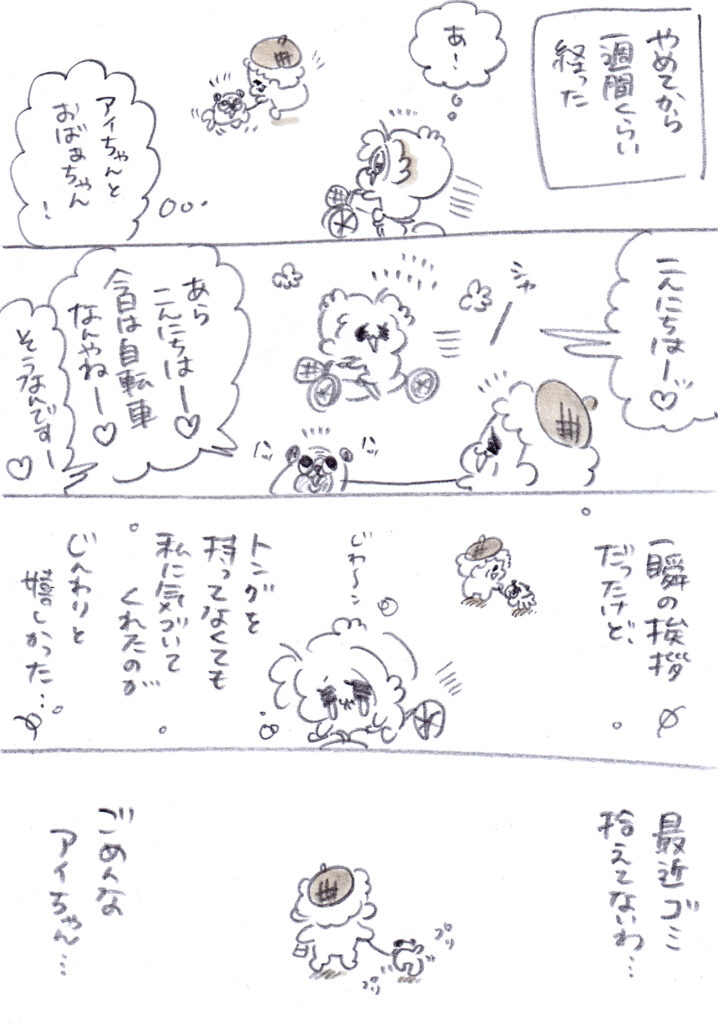 やめてから
一週間くらい
経った
あ!
アイちゃんと
おばぁちゃん
!
こんにちはー♡
シャ
あら
こんにちはー♡
今日は自転車
なんやねー♡
そうなんですー♡
一瞬の挨拶
だったけど、
じわ〜ン
トングを
持ってなくても
私に気づいて
くれたのが
じんわりと
嬉しかった…
最近ゴミ
拾えてないわ…
プリ
プリ
ごめんな
アイちゃん…